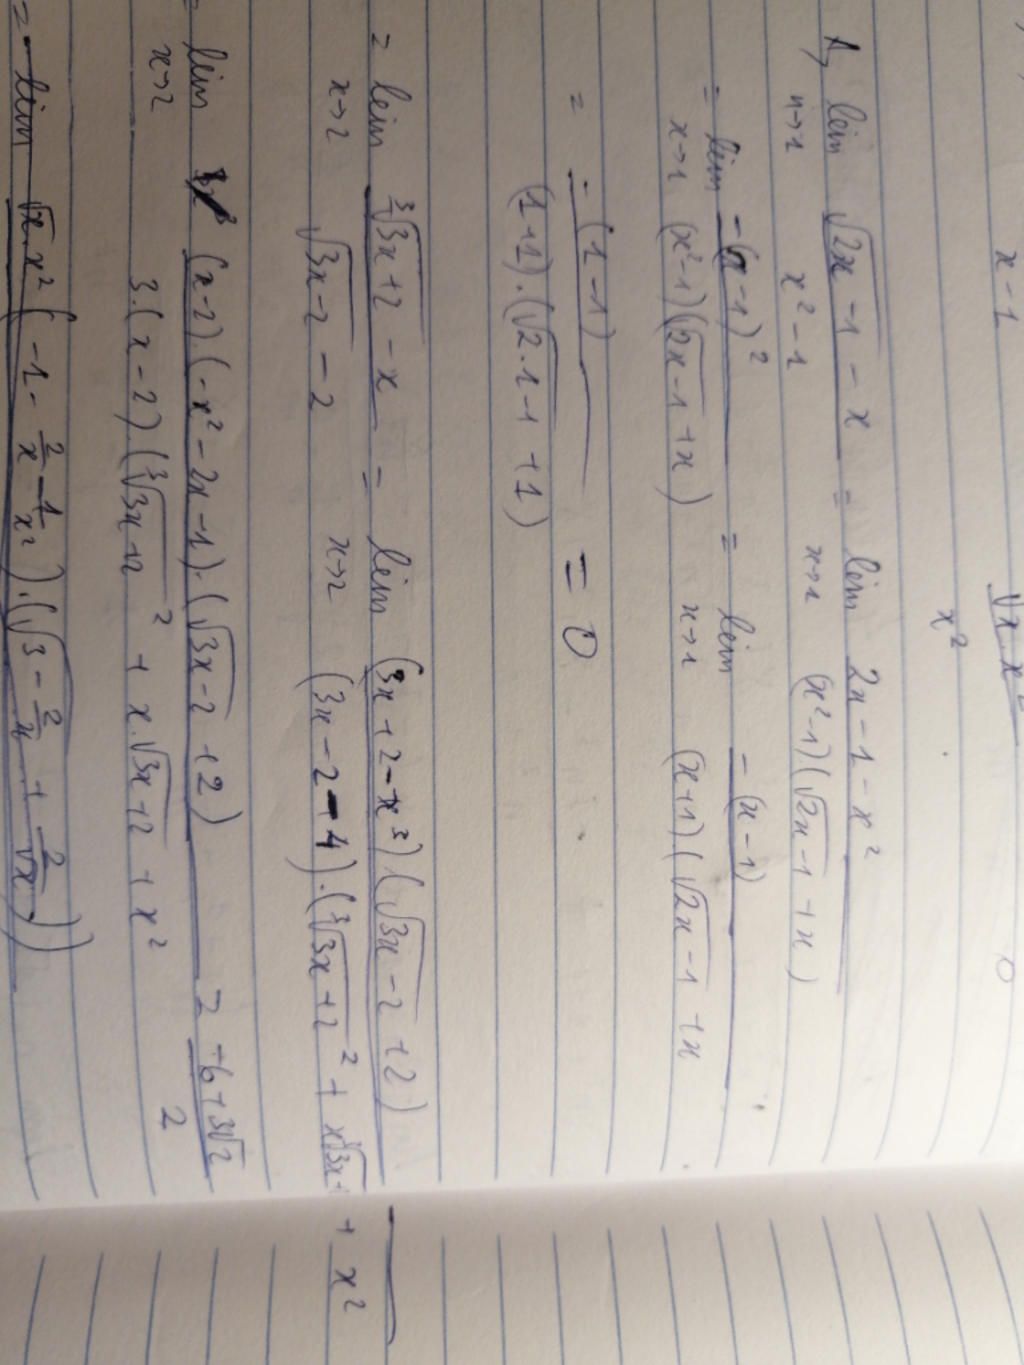 x - 1
√x . x²
0
x²
1, lim x→1 (√(2x - 1) - x)/(x² - 1) = lim x→1 (2x - 1 - x²)/((x² - 1)(√(2x - 1) + x))
= lim x→1 (-(x - 1)²)/((x² - 1)(√(2x - 1) + x)) = lim x→1 (-(x - 1))/((x + 1)(√(2x - 1) + x)
= (-(1 - 1))/((1 + 1).(√(2.1 - 1) + 1)) = 0
= lim x→2 (∛(3x + 2) - x)/(√(3x - 2) - 2) = lim x→2 ((3x + 2 - x³)(√(3x - 2) + 2))/((3x - 2 - 4).(∛(3x + 2)² + x∛3x + x²
= lim x→2 ((x - 2)(-x² - 2x - 1).(√(3x - 2) + 2))/(3.(x - 2).(∛(3x + 2)² + x.√(3x + 2) + x² = (-6 + 3√2)/2
= lim (√x . x² (-1 - 2/x - 1/x²).(√(3 - 2/x) + 2/√x))